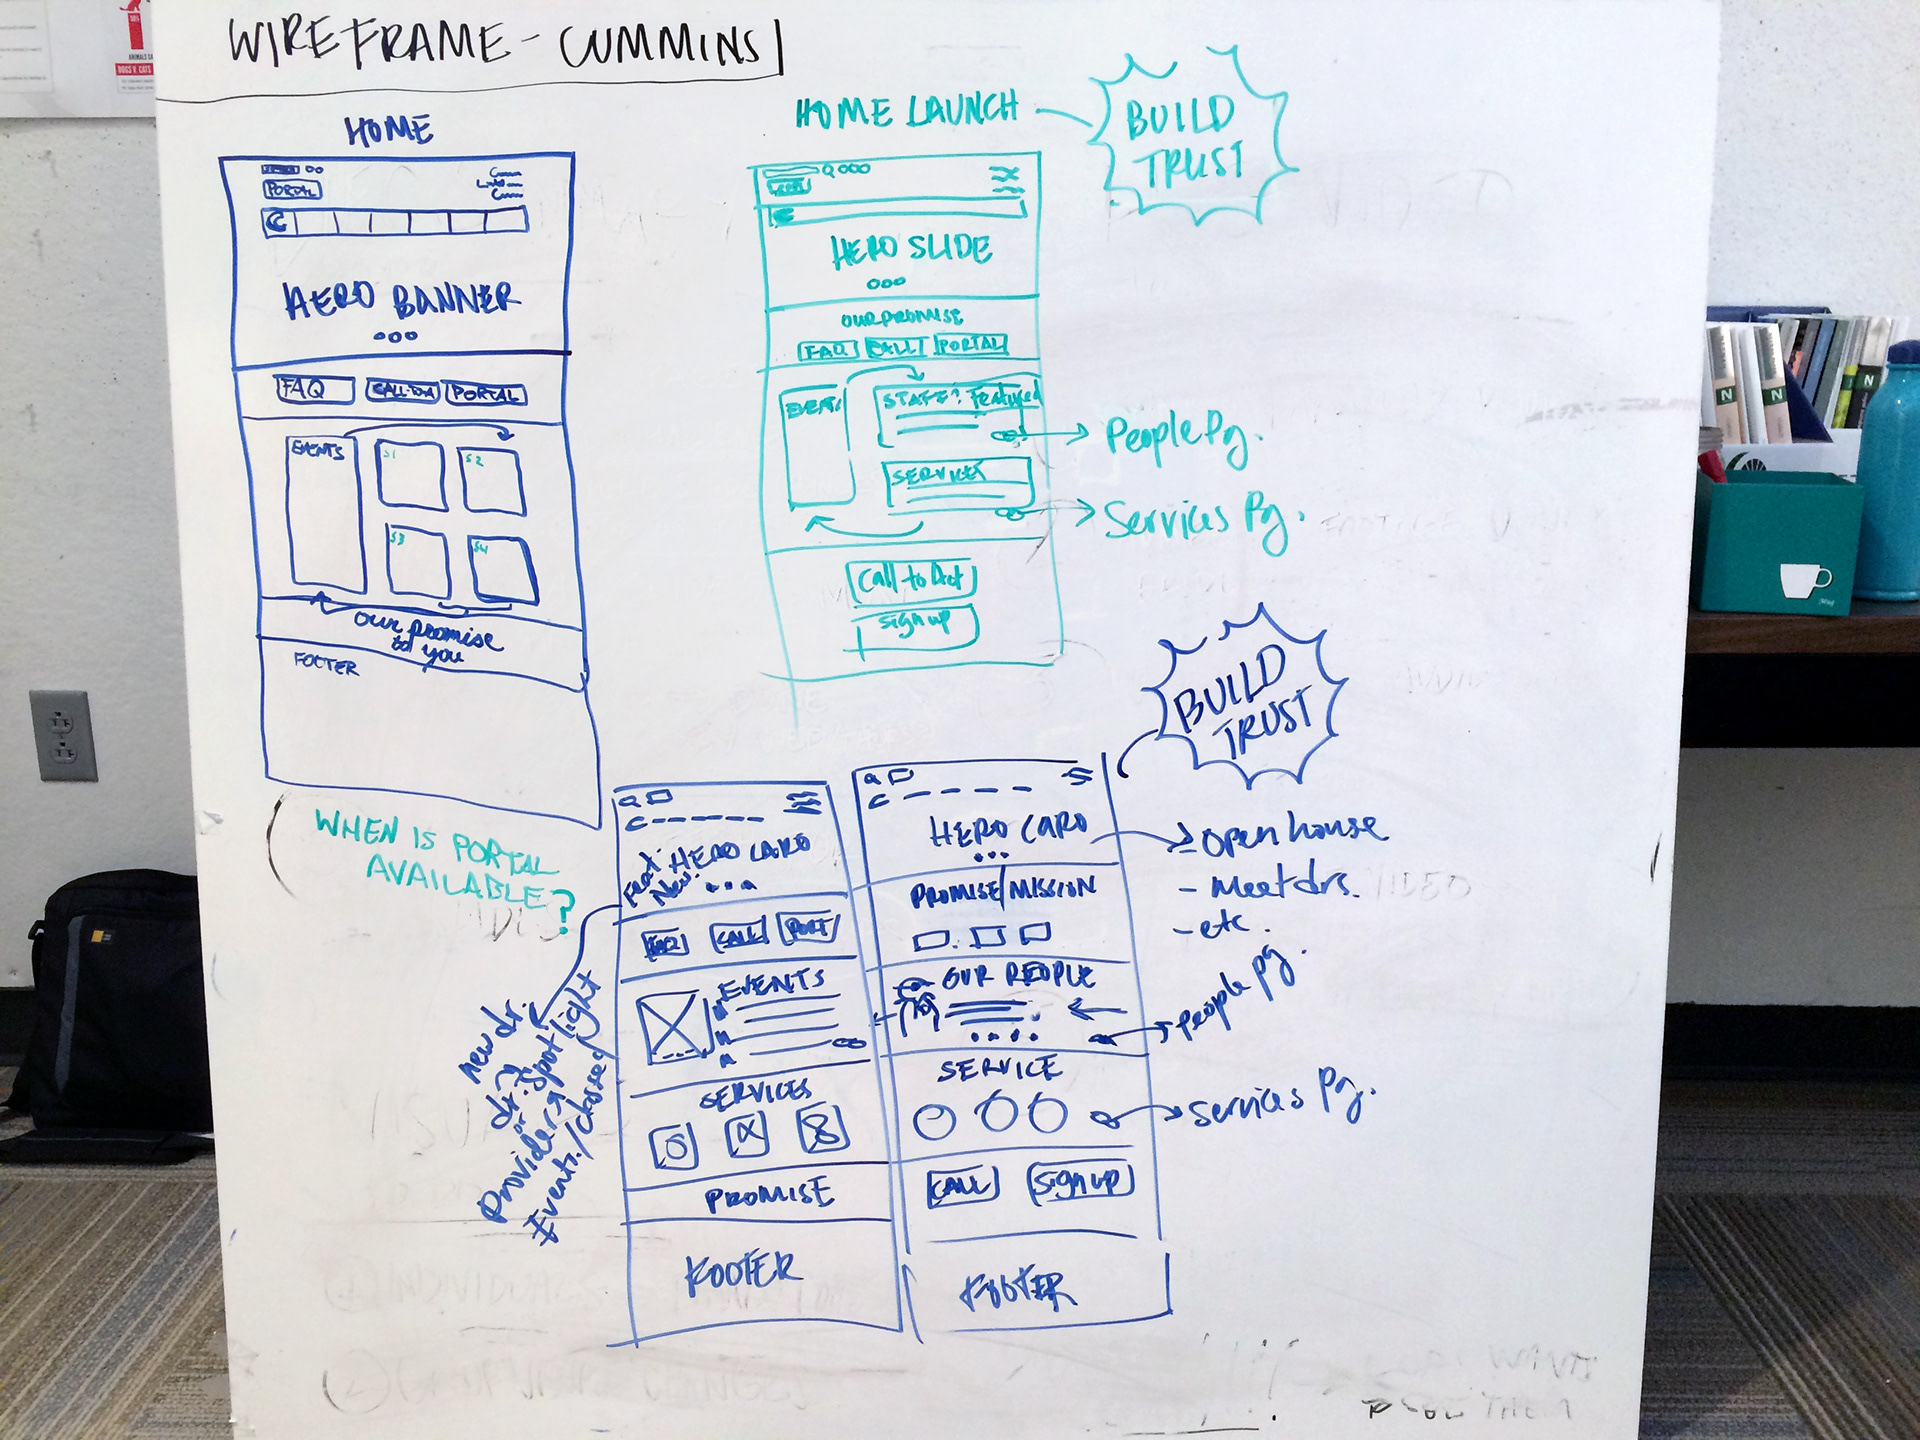 WIREFRAME - CUMMINS
HOME
PORTAL
HERO BANNER
FAQ
CALL-TO-A
PORTAL
EVENTS
S1
S2
S3
S4
our promise
to you
FOOTER
HOME LAUNCH
BUILD
TRUST
HERO SLIDE
OUR PROMISE
FAQ
CALL
PORTAL
EVENT
STAFF? Featured
SERVICES
People Pg.
Services Pg.
Call to Act
sign up
WHEN IS PORTAL
AVAILABLE?
HERO CARD
Feat.
New!
FAQ
CALL
PORT
EVENTS
SERVICES
PROMISE
FOOTER
new dr.
dr. spotlight
or
Providers
Events/closed
BUILD
TRUST
HERO CARD
- Open house
- Meet drs.
- etc.
PROMISE/MISSION
OUR PEOPLE
people pg.
SERVICE
Services Pg.
CALL
Sign up
FOOTER
DOGS V. CATS
N
N
N